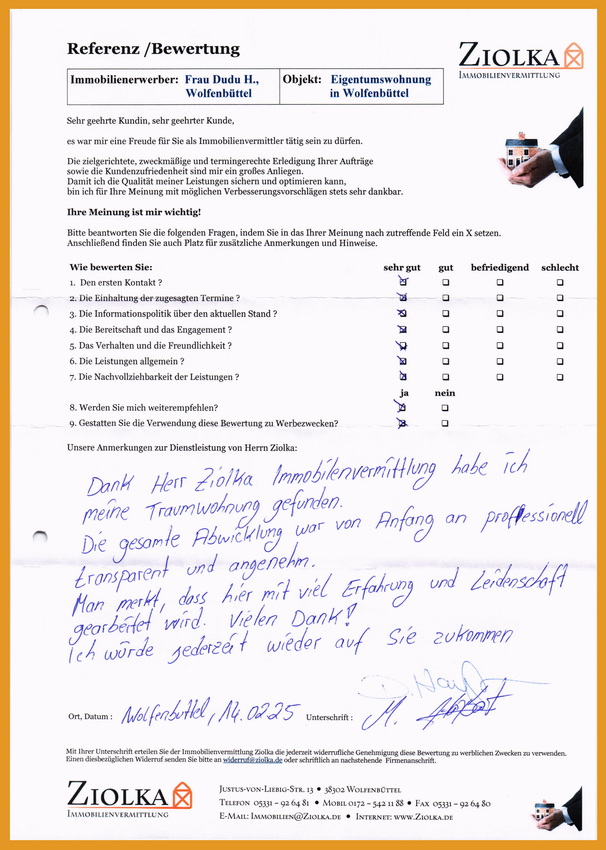 Referenz /Bewertung
ZIOLKA
IMMOBILIENVERMITTLUNG
Immobilienerwerber: Frau Dudu H., Objekt: Eigentumswohnung
Wolfenbüttel in Wolfenbüttel
Sehr geehrte Kundin, sehr geehrter Kunde,
es war mir eine Freude für Sie als Immobilienvermittler tätig sein zu dürfen.
Die zielgerichtete, zweckmäßige und termingerechte Erledigung Ihrer Aufträge
sowie die Kundenzufriedenheit sind mir ein großes Anliegen.
Damit ich die Qualität meiner Leistungen sichern und optimieren kann,
bin ich für Ihre Meinung mit möglichen Verbesserungsvorschlägen stets sehr dankbar.
Ihre Meinung ist mir wichtig!
Bitte beantworten Sie die folgenden Fragen, indem Sie in das Ihrer Meinung nach zutreffende Feld ein X setzen.
Anschließend finden Sie auch Platz für zusätzliche Anmerkungen und Hinweise.
Wie bewerten Sie: sehr gut gut befriedigend schlecht
1. Den ersten Kontakt ?
2. Die Einhaltung der zugesagten Termine ?
3. Die Informationspolitik über den aktuellen Stand ?
4. Die Bereitschaft und das Engagement ?
5. Das Verhalten und die Freundlichkeit ?
6. Die Leistungen allgemein ?
7. Die Nachvollziehbarkeit der Leistungen ?
ja nein
8. Werden Sie mich weiterempfehlen?
9. Gestatten Sie die Verwendung diese Bewertung zu Werbezwecken?
Unsere Anmerkungen zur Dienstleistung von Herrn Ziolka:
Dank Herr Ziolka Immobilenvermittlung habe ich
meine Traumwohnung gefunden.
Die gesamte Abwicklung war von Anfang an proffessionell
transparent und angenehm.
Man merkt, dass hier mit viel Erfahrung und Leidenschaft
gearbeitet wird. Vielen Dank!
Ich würde jederzeit wieder auf Sie zukommen
Ort, Datum : Wolfenbüttel, 14.02.25 Unterschrift :
Mit Ihrer Unterschrift erteilen Sie der Immobilienvermittlung Ziolka die jederzeit widerrufliche Genehmigung diese Bewertung zu werblichen Zwecken zu verwenden.
Einen diesbezüglichen Widerruf senden Sie bitte an widerruf@ziolka.de oder schriftlich an nachstehende Firmenanschrift.
ZIOLKA
IMMOBILIENVERMITTLUNG
JUSTUS-VON-LIEBIG-STR. 13 • 38302 WOLFENBÜTTEL
TELEFON 05331 – 92 64 81 • MOBIL 0172 – 542 11 88 • FAX 05331 – 92 64 80
E-MAIL: IMMOBILIEN@ZIOLKA.DE • INTERNET: WWW.ZIOLKA.DE